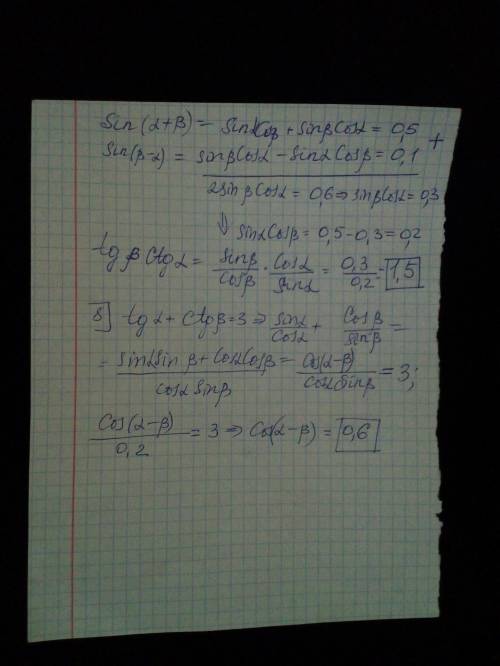 sin(α+β) = sinα cosβ + sinβ cosα = 0,5 +
sin(β-α) = sinβ cosα - sinα cosβ = 0,1
2sinβ cosα = 0,6 ⇒ sinβ cosα = 0,3
⇓ sinα cosβ = 0,5 - 0,3 = 0,2
tg β ctg α = sinβ/cosβ · cosα/sinα = 0,3/0,2 = 1,5
б) tg α + ctg β = 3 ⇒ sinα/cosα + cosβ/sinβ =
= (sinα sinβ + cosα cosβ)/(cosα sinβ) = cos(α-β)/(cosα sinβ) = 3;
cos(α-β)/0,2 = 3 ⇒ cos(α-β) = 0,6